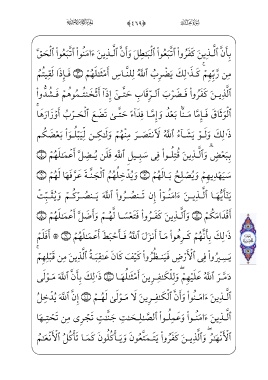 بِأَنَّ ٱلَّذِينَ كَفَرُوا۟ ٱتَّبَعُوا۟ ٱلْبَٰطِلَ وَأَنَّ ٱلَّذِينَ ءَامَنُوا۟ ٱتَّبَعُوا۟ ٱلْحَقَّ
مِن رَّبِّهِمْ كَذَٰلِكَ يَضْرِبُ ٱللَّهُ لِلنَّاسِ أَمْثَٰلَهُمْ فَإِذَا لَقِيتُمُ
ٱلَّذِينَ كَفَرُوا۟ فَضَرْبَ ٱلرِّقَابِ حَتَّىٰٓ إِذَآ أَثْخَنتُمُوهُمْ فَشُدُّوا۟
ٱلْوَثَاقَ فَإِمَّا مَنًّۢا بَعْدُ وَإِمَّا فِدَآءً حَتَّىٰ تَضَعَ ٱلْحَرْبُ أَوْزَارَهَا
ذَٰلِكَ وَلَوْ يَشَآءُ ٱللَّهُ لَٱنتَصَرَ مِنْهُمْ وَلَٰكِن لِّيَبْلُوَا۟ بَعْضَكُم
بِبَعْضٍ وَٱلَّذِينَ قُتِلُوا۟ فِى سَبِيلِ ٱللَّهِ فَلَن يُضِلَّ أَعْمَٰلَهُمْ
سَيَهْدِيهِمْ وَيُصْلِحُ بَالَهُمْ وَيُدْخِلُهُمُ ٱلْجَنَّةَ عَرَّفَهَا لَهُمْ
يَٰٓأَيُّهَا ٱلَّذِينَ ءَامَنُوٓا۟ إِن تَنصُرُوا۟ ٱللَّهَ يَنصُرْكُمْ وَيُثَبِّتْ
أَقْدَامَكُمْ وَٱلَّذِينَ كَفَرُوا۟ فَتَعْسًا لَّهُمْ وَأَضَلَّ أَعْمَٰلَهُمْ
ذَٰلِكَ بِأَنَّهُمْ كَرِهُوا۟ مَآ أَنزَلَ ٱللَّهُ فَأَحْبَطَ أَعْمَٰلَهُمْ ۞ أَفَلَمْ
يَسِيرُوا۟ فِى ٱلْأَرْضِ فَيَنظُرُوا۟ كَيْفَ كَانَ عَٰقِبَةُ ٱلَّذِينَ مِن قَبْلِهِمْ
دَمَّرَ ٱللَّهُ عَلَيْهِمْ وَلِلْكَٰفِرِينَ أَمْثَٰلُهَا ذَٰلِكَ بِأَنَّ ٱللَّهَ مَوْلَى
ٱلَّذِينَ ءَامَنُوا۟ وَأَنَّ ٱلْكَٰفِرِينَ لَا مَوْلَىٰ لَهُمْ إِنَّ ٱللَّهَ يُدْخِلُ
ٱلَّذِينَ ءَامَنُوا۟ وَعَمِلُوا۟ ٱلصَّٰلِحَٰتِ جَنَّٰتٍ تَجْرِى مِن تَحْتِهَا
ٱلْأَنْهَٰرُ وَٱلَّذِينَ كَفَرُوا۟ يَتَمَتَّعُونَ وَيَأْكُلُونَ كَمَا تَأْكُلُ ٱلْأَنْعَٰمُ